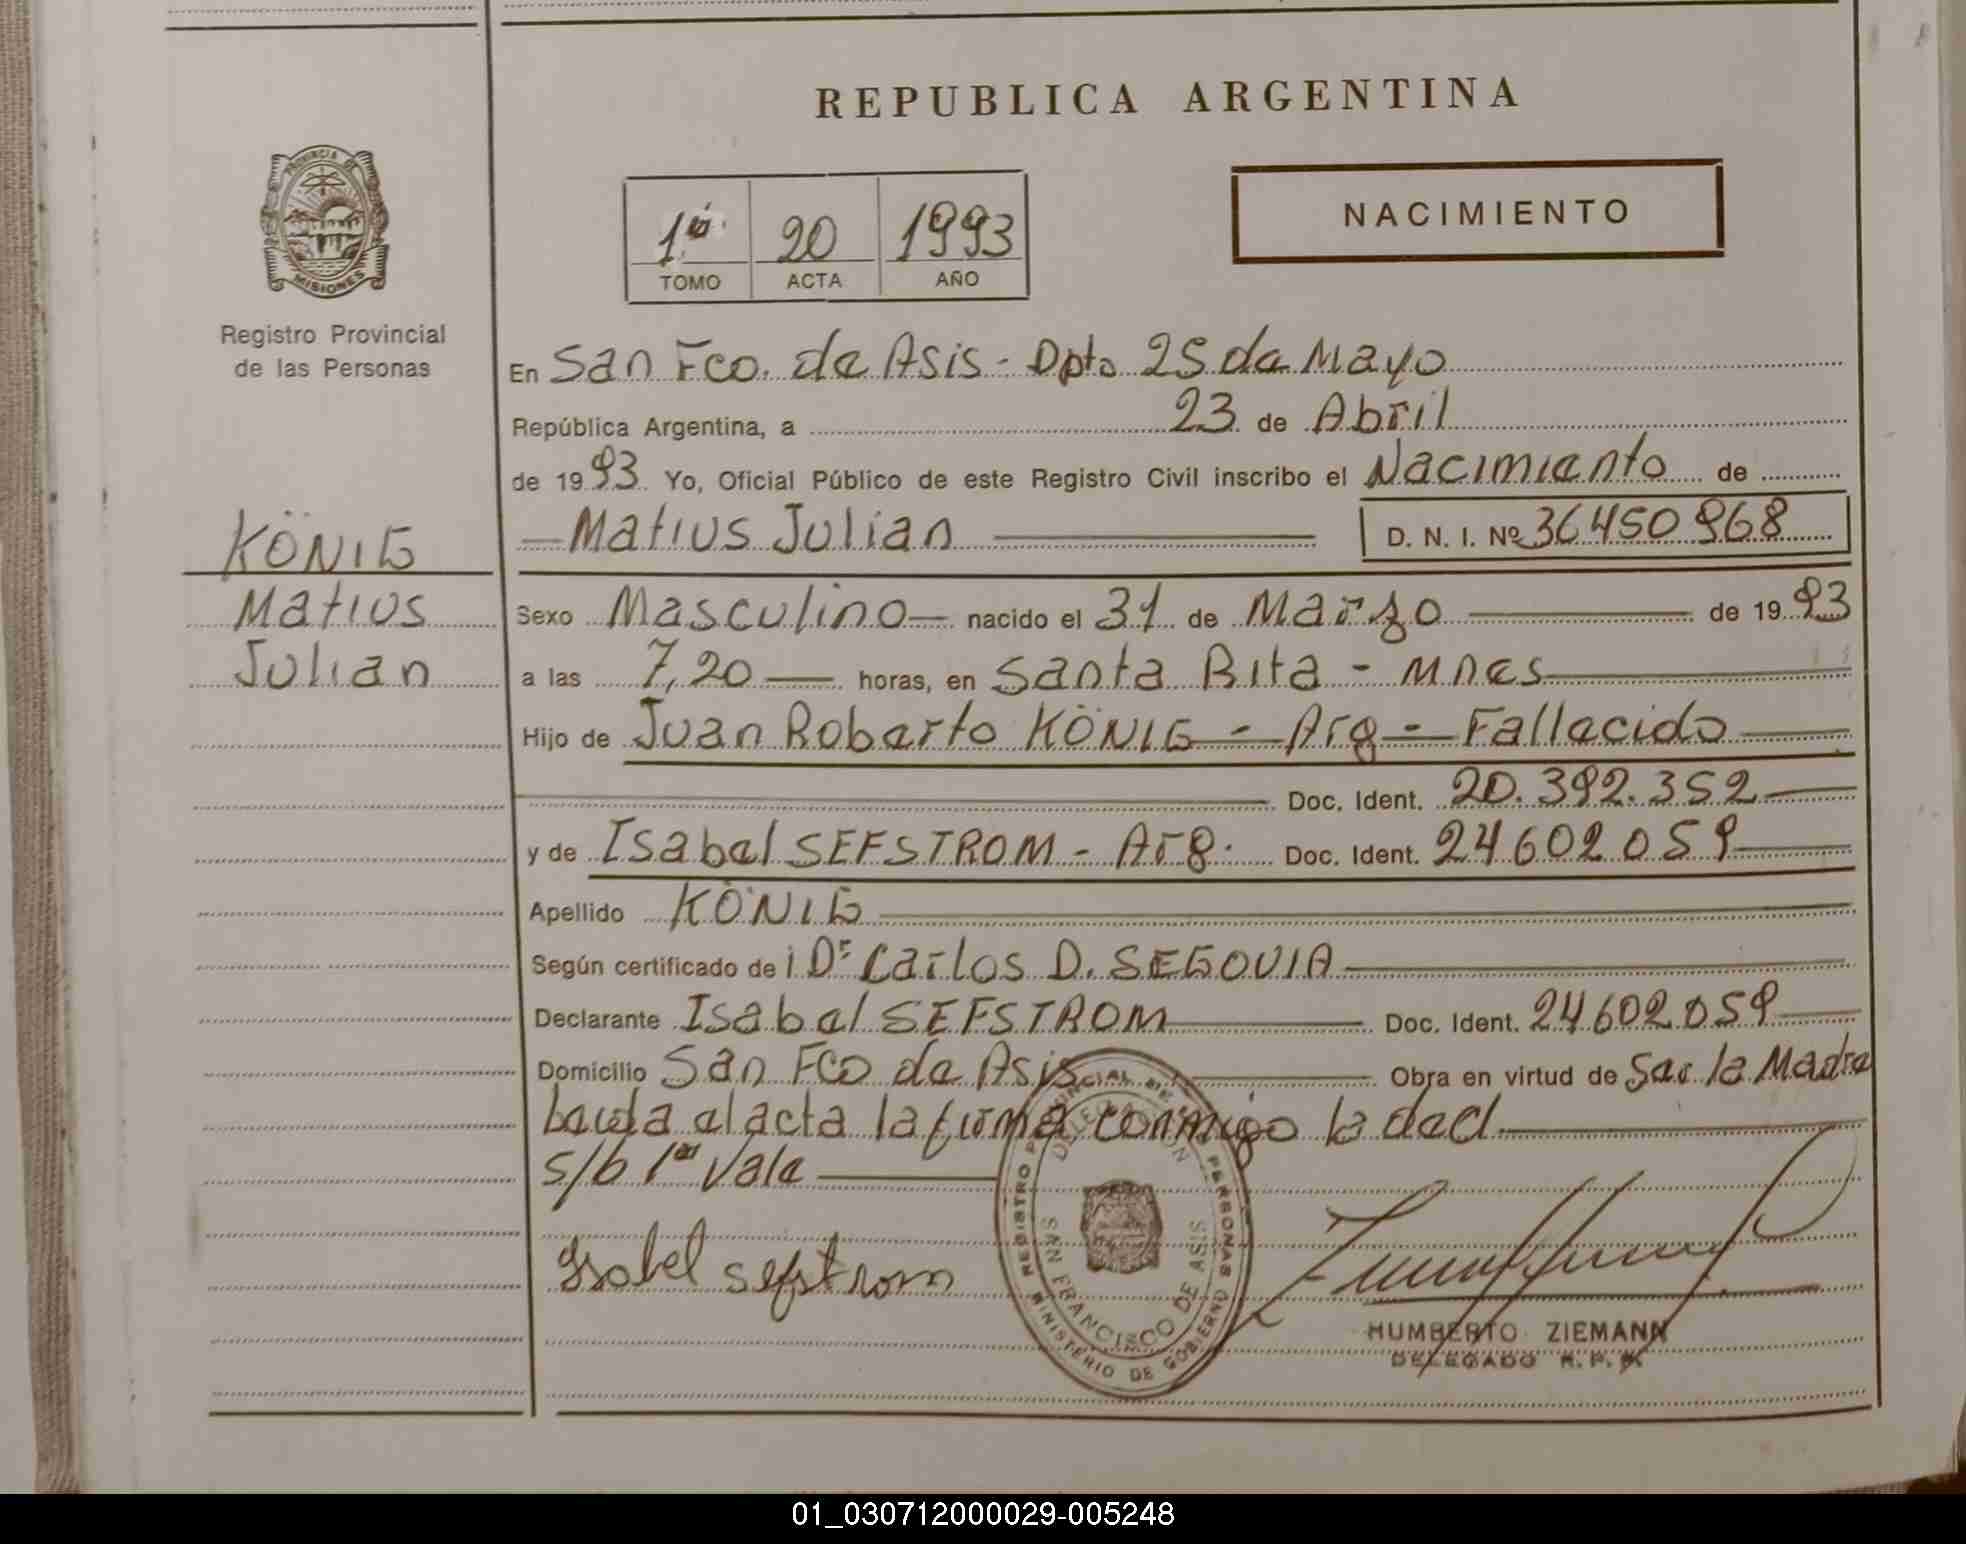 REPUBLICA ARGENTINA
PROVINCIA DE
MISIONES
Registro Provincial
de las Personas
1º 20 1993
TOMO ACTA AÑO
NACIMIENTO
KÖNIG
Matius
Julian
En San Fco. de Asis - Dpto 25 de Mayo
República Argentina, a 23 de Abril
de 1993 Yo, Oficial Público de este Registro Civil inscribo el Nacimiento de
Matius Julian D. N. I. Nº 36450968
Sexo Masculino nacido el 31 de Marzo de 1993
a las 7,20 horas, en Santa Rita - Mnes
Hijo de Juan Roberto KÖNIG - Arg - Fallecido
Doc. Ident. 20.392.352
y de Isabel SEFSTROM - Arg. Doc. Ident. 24602059
Apellido KÖNIG
Según certificado de Dr Carlos D. SEGOVIA
Declarante Isabel SEFSTROM Doc. Ident. 24602059
Domicilio San Fco de Asis Obra en virtud de Ser la Madre
leida el acta la firma conmigo la decl.
s/b 1er Vale
Isabel Sefstrom
REGISTRO PROVINCIAL DE LAS PERSONAS
DELEGACION
SAN FRANCISCO DE ASIS
MINISTERIO DE GOBIERNO
HUMBERTO ZIEMANN
DELEGADO R. P. P.
01_030712000029-005248